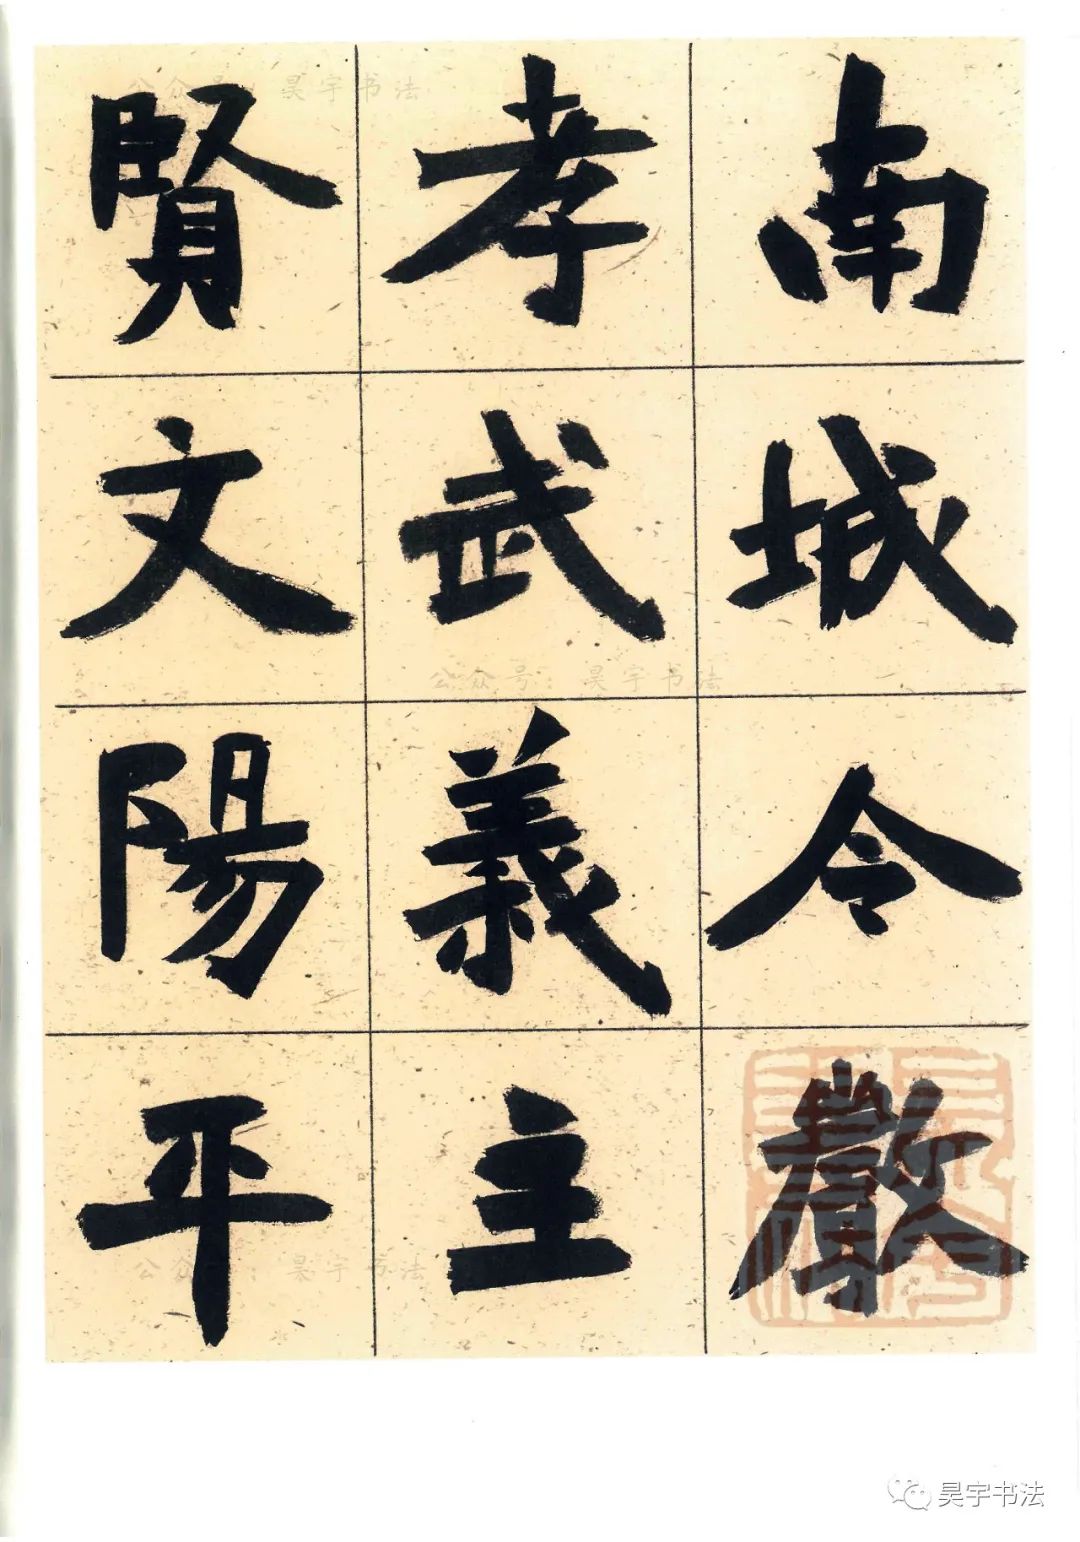 南城令
孝武義主
賢文陽平
公众号:昊宇书法
公众号:昊宇书法
公众号:昊宇书法
昊宇书法